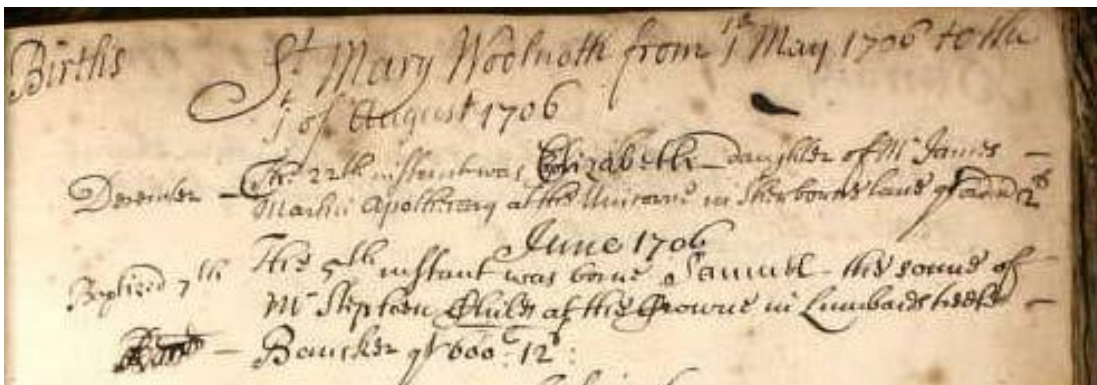 Births St Mary Woolnoth from 1st May 1706 to the
1st of August 1706
December – The 22th instant was Elizabeth daughter of Mr James –
Martin Apothecary at the Unicorne in Sherborne lane
June 1706
Baptized 7th The 5th instant was borne Samuel the sonne of
Mr Stephen Childe at the Crowne in Lumbard streete –
– Bancker qr 600£ 12s :